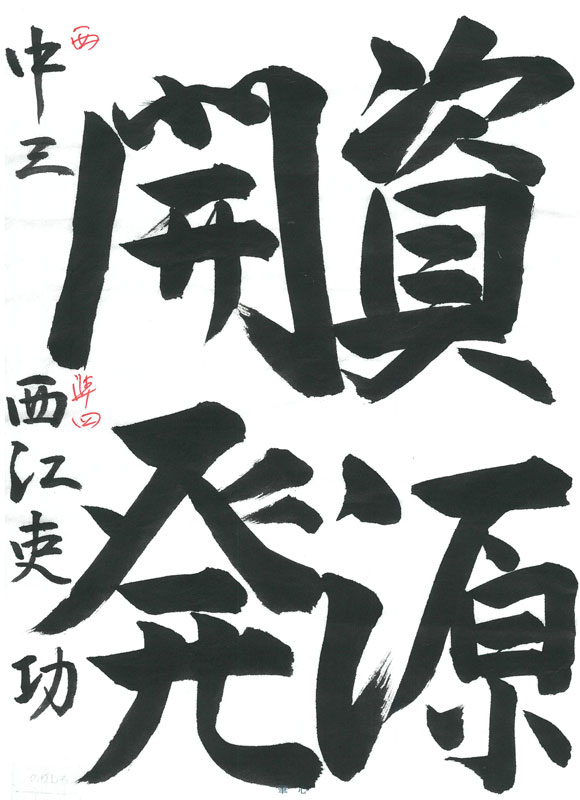 資源
開発
中三 西江吏功
西
準四